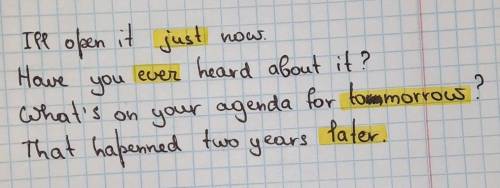 I'll open it just now.
Have you ever heard about it?
What's on your agenda for tommorrow?
That hapenned two years later.